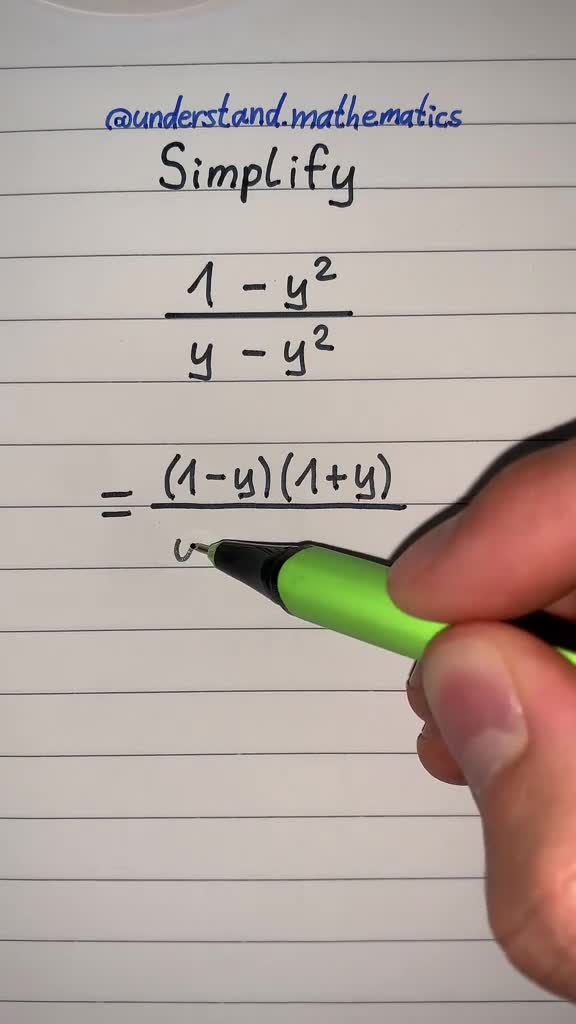 @understand.mathematics
Simplify
1 - y²
y - y²
= (1-y)(1+y)